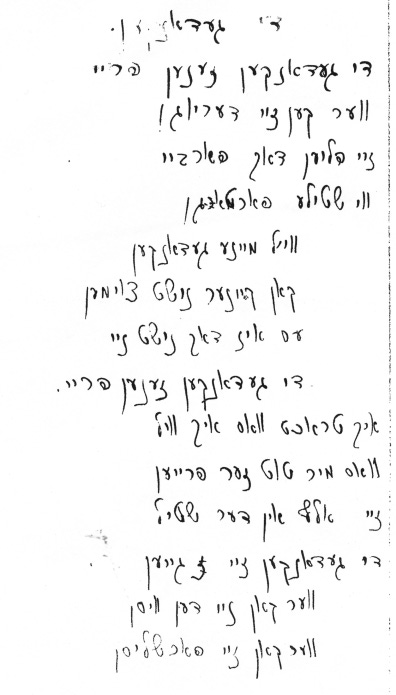 די געדאנקען.
די געדאנקען זענען פריי
ווער קען זיי דעריאגן
זיי פליען דאך פארביי
ווי שטילע פארטאגן
ווייל מיינע געדאנקען
קאן קיינער נישט צוימען
עס איז דאך נישט זיי
די געדאנקען זענען פריי.
איך טראכט וואס איך וויל
וואס מיר טוט זער פרייען
זיי אלץ אין דער שטיל
די געדאנקען זיי גייען
ווער קאן זיי דען וויסן
ווער קאן זיי פארשליסן